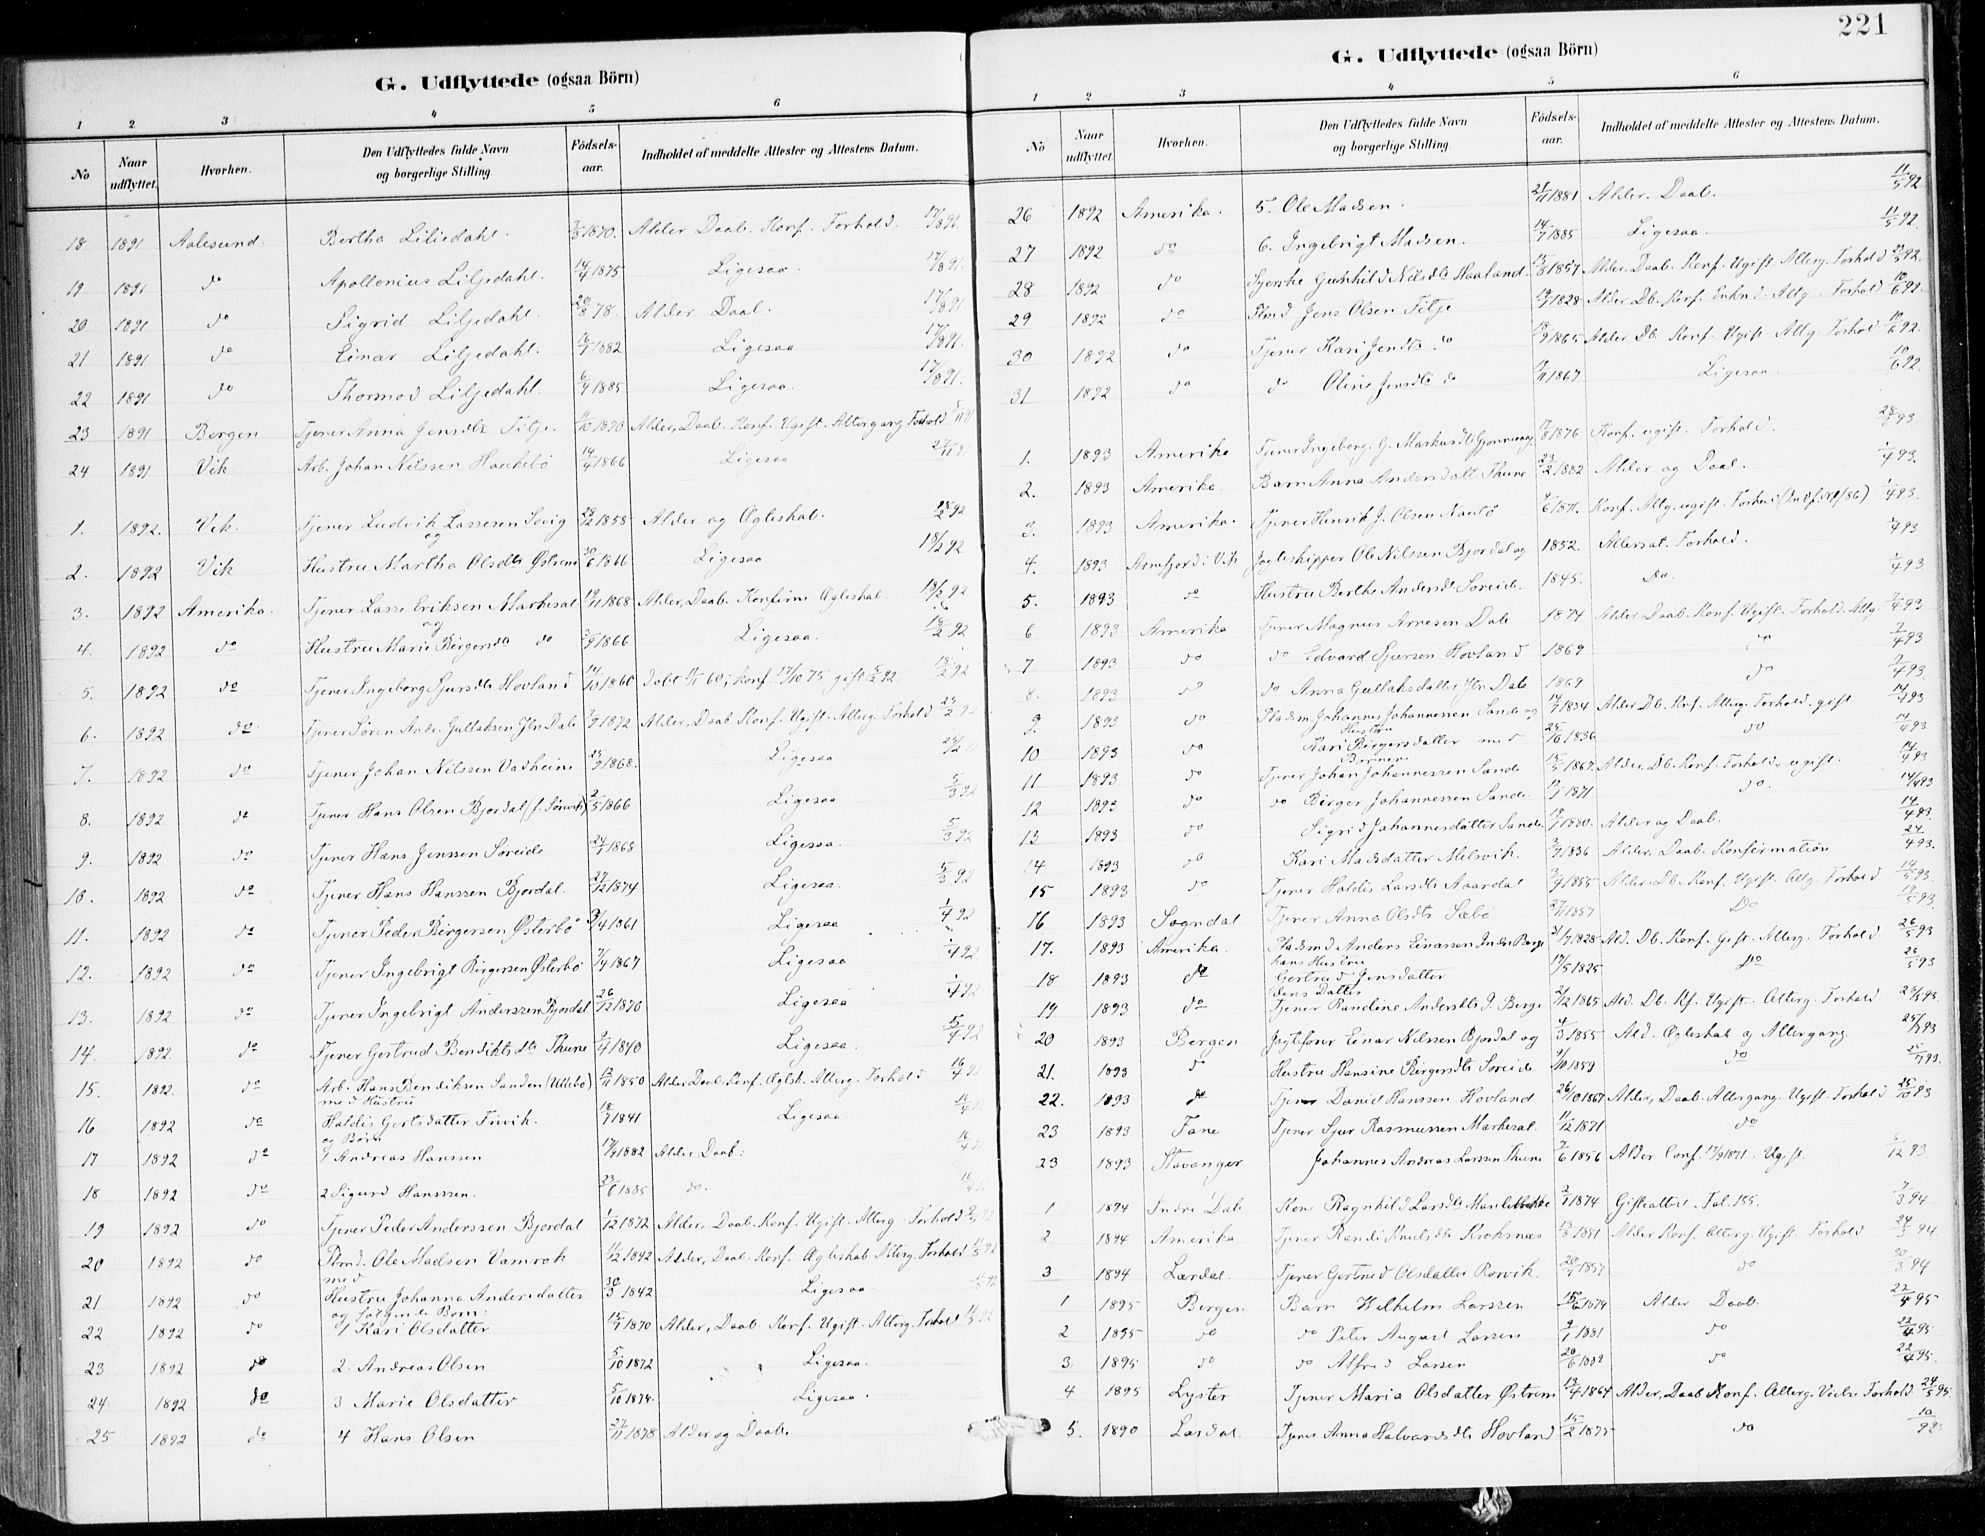 G. Udflyttede (ogsaa Börn)
1 2 3 4 5 6
No Naar udflyttet. Hvorhen. Den Udflyttedes fulde Navn og borgerlige Stilling. Födsels-aar. Indholdet af meddelte Attester og Attestens Datum.
18 1891 Aalesund. Bertha Liljedahl. 1870. Alder Daab. Konf. Forhold. 17/8 91
19 1891 do Apollonius Liljedahl. 1875 Ligesaa. 17/8 91.
20 1891 do Sigrid Liljedahl. 20/8 78. Alder Daab. 17/8 91
21 1891 do Einar Liljedahl. 16/7 1882 Ligesaa 17/8 91.
22 1891 do Thormod Liljedahl. 6/4 1885 Ligesaa. 17/8 91.
23 1891 Bergen Tjener Anna Jensdtr Titje. 1870 Alder, Daab. Konf. Ugift. Altergang Forhold
24 1891 Vik Arb. Johan Nilssen 14/4 1866 Ligesaa
1. 1892. Vik. Tjener Ludvik Lassesen 1858 Alder og Ægteskab. 18/2 92
og
2. 1892 Vik Hustru Martha Olsdtr Østrem 30/6 1866 Ligesaa 18/2 92
3. 1892 Amerika. Tjener Lasse Eriksen Markesat 1868 Alder, Daab. Konfirm. Ægteskab 18/2 92
og
4. 1892 do Hustru Marie Birgersdtr do 1866 Ligesaa. 18/2 92
5. 1892 do Tjener Ingeborg Sjursdtr Hovland 1860 konf. 17/10 75 gift 92 18/2 92
6. 1892 do Tjener Søren Andr. Gullaksen Ytr. Dale 1872 Alder, Daab Konf. Ugift. Alterg. Forhold 23/2 92
7. 1892 do Tjener Johan Nilssen Vadheim 25/9 1868. Ligesaa
8. 1892 do Tjener Hans Olsen Bjordal 2/5 1866 Ligesaa 5/3 92
9. 1892 do Tjener Hans Jenssen Søreide 24/1 1868 Ligesaa. 5/3 92
10. 1892 do Tjener Hans Hanssen Bjordal. 27/12 1874 Ligesaa. 5/3 92
11. 1892 do Tjener Peder Birgersen Østerbø 1861 Ligesaa 1/4 92
12. 1892 do Tjener Ingebrigt Birgersen Østerbø 7/4 1867 Ligesaa 1/4 92
13. 1892 do Tjener Ingebrigt Anderssen Bjordal 26/12 1870 Ligesaa 1/4 92
14. 1892. do Tjener Gertrud Bendiktsdtr Thune 1840 Ligesaa. 5/4 92
15. 1892. do Arb. Hans Bendiksen Sanden (Ullebø) 1850 Alder Daab Konf. Ægtsk. Alterg. Forhold
med Hustru
16 1892 do Haldis Gertsdatter Trivik. 18/7 1841 Ligesaa.
og Børn
17 1892 do 1 Andreas Hanssen 17/9 1882 Alder Daab:
18 1892 do 2 Sigurd Hanssen. 23/6 1885 do.
19 1892 do Tjener Peder Anderssen Bjordal 1/12 1872 Alder, Daab. Konf. Ugift. Alterg. Forhold
20 1892 do Ole Madsen Vamrak 1842 Alder, Daab. Konf. Ægteskab Alterg. Forhold
med
21 1892 do Hustru Johanna Andersdatter 30/3 1842 Ligesaa.
og følgende Børn:
22 1892 do 1 Kari Olsdatter 15/1 1870 Alder, Daab. Konf. Ugift. Alterg. Forhold
23 1892 do 2. Andreas Olsen 5/10 1872 Ligesaa.
24 1892 do 3 Marie Olsdatter 5/10 1875. Ligesaa.
25 1892 do 4 Hans Olsen 27/11 1878 Alder og Daab.
221
G. Udflyttede (ogsaa Börn)
1 2 3 4 5 6
No Naar udflyttet. Hvorhen. Den Udflyttedes fulde Navn og borgerlige Stilling. Födsels-aar. Indholdet af meddelte Attester og Attestens Datum.
26 1892 Amerika. 5. Ole Madsen. 1881 Alder. Daab. 11/5 92
27 1892 do 6. Ingebrigt Madsen. 14/7 1885 Ligesaa. 11/5 92.
28 1892 do Gunhild Nilsdtr Haaland. 1857 Alder. Daab. Konf. Ugift. Alterg. Forhold
29 1892 do Jens Olsen Titje 1828 Alder Db. Konf. Enkmd. Altg. Forhold 10/6 92.
30 1892 do Tjener Kari Jensdtr do 1865 Alder Db. Konf. Ugift. Altg Forhold 10/6 92.
31 1892 do do Oline Jensdtr do 1867 Ligesaa. 10/6 92.
1. 1893 Amerika Tjener Ingeborg G. Markusdtr 1876 Konf. ugift. Forhold. 93
2. 1893 Amerika. Barn Anna Andersdatr Thune 23/2 1882 Alder og Daab. 1/4 93.
3. 1893 Amerika. Tjener Henrik J. Olsen Konf. Altg. ugift. Forhold 1/4 93.
4. 1893 Arnefjord i Vik Jagteskipper Ole Nilssen Bjordal og 1852. Attersat. Forhold. 1/4 93
5. 1893 do Hustru Berthe Andersdr Søreide. 1845. do. 1/4 93
6 1893 Amerika Tjener Magnus Arnesen Dale 1874 Alder Daab. Konf. Ugift. Forhold. Altg. 7/4 93
7 1893 do do Edvard Sjursen Hovland 1869 " 7/4 93
8. 1893 do do Anna Gullaksdatter Ytr. Dale 1869 do 7/4 93.
9. 1893 do Pladsm. Johannes Johannessen Sande og 14/7 1834 Alder Db. Knf. Alterg. Forhold. gift 14/4 93
Hustru
10 1893 do Kari Birgersdatter med 25/6 1836 do 14/4 93
Børnene
11 1893 do Tjener Johan Johannessen Sande 1867 Alder, Db. Konf. Forhold, ugift. 14/4 93
12 1893 do do Birger Johannessen Sande. 1871 do. 14/4 93
13 1893 do Sigrid Johannesdatter Sande. 1880. Alder og Daab. 14/4 93.
14 1893 do Kari Madsdatter Melvik. 1836 Alder, Daab. Konfirmation 24/4 93.
15 1893 do Tjener Haldis Larsdtr Aaardal 1855 Alder Db. Konf. Ugift. Altg. Forhold 14/5 93.
16 1893 Sogndal Tjener Anna Olsdtr Sæbø 1857 Do 93.
17. 1893 Amerika. Pladsmd Anders Einarssen Indre Berge 1828 Ald. Db. Konf. Gift. Alterg. Forhold 26/5 93
hans Hustru
18 1893 do Gertrud Jensdatter 17/5 1825 do 26/5 93
deres Datter
19 1893 do Tjener Randine Andersdtr I. Berge 1865 Ald. Db. Kf. Ugift. Alterg. Forhold 93.
20 1893 Bergen Jagtefører Einar Nilssen Bjordal og 4/3 1855 Ald. Ægteskab og Altergang. 25/7 93
21. 1893 do Hustru Hansine Birgersdtr Søreide 1859 do 25/7 93.
22. 1893 do Tjener Daniel Hanssen Hovland 26/10 1867 Alder, Daab. Altergang. Ugift. Forhold 25/10 93
23 1893 Fane Tjener Sjur Rasmussen Markesat. 11/12 1871 do
23 1893 Stavanger Johannes Andreas Larssen Thune 7/6 1856 Alder Conf. 17/9 1871. Ugift. 12 93.
1 1894 Indre Dale Kone Ragnhild Larsdtr 2/1 1874 Gifteattest. Fol. 155. 7/3 94
2 1894 Amerika Tjener Randi Knudsdtr Kroksnæs 1851 Alder Konf. Alterg. Ugift. Forhold 24/3 94.
3 1894 Lærdal. Tjener Gertrud Olsdatter Rørvik. 1857 do 30/3 94
1 1895 Bergen Barn Wilhelm Larssen 15/6 1879 Alder Daab. 22/4 95
2 1895 do do Peter August Larsen 9/1 1881 do 22/4 95
3 1895 do do Alfred Larsen 20/6 1882 do 22/4 95.
4 1895 Lyster Tjener Maria Olsdatter Østrem 13/4 1864 Alder, Daab Konf. Alterg. Forhold 24/5 95.
5. 1890 Lærdal. Tjener Anna Halvardsdtr Hovland 15/2 1875 do